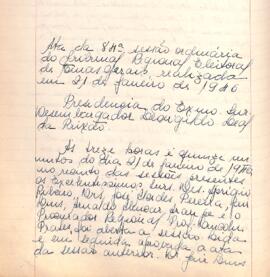 Ata da 84ª sessão ordinária
do Tribunal Regional Eleitoral
de Minas Gerais, realizada
em 21 de janeiro de 1946
Presidencia do Exmo. Snr.
Desembargador Leal
da Paixão.
Às treze horas e quinze mi
nutos do dia 21 de janeiro de 1946
no recinto das sessões, presentes
os Excelentissimos Snrs. Drs.
Drs. José
Alencar, e o
Procurador Regional, Prof. Onofre
foi aberta a sessão, lida
e em seguida aprovada a ata
da sessão anterior. Dr. José